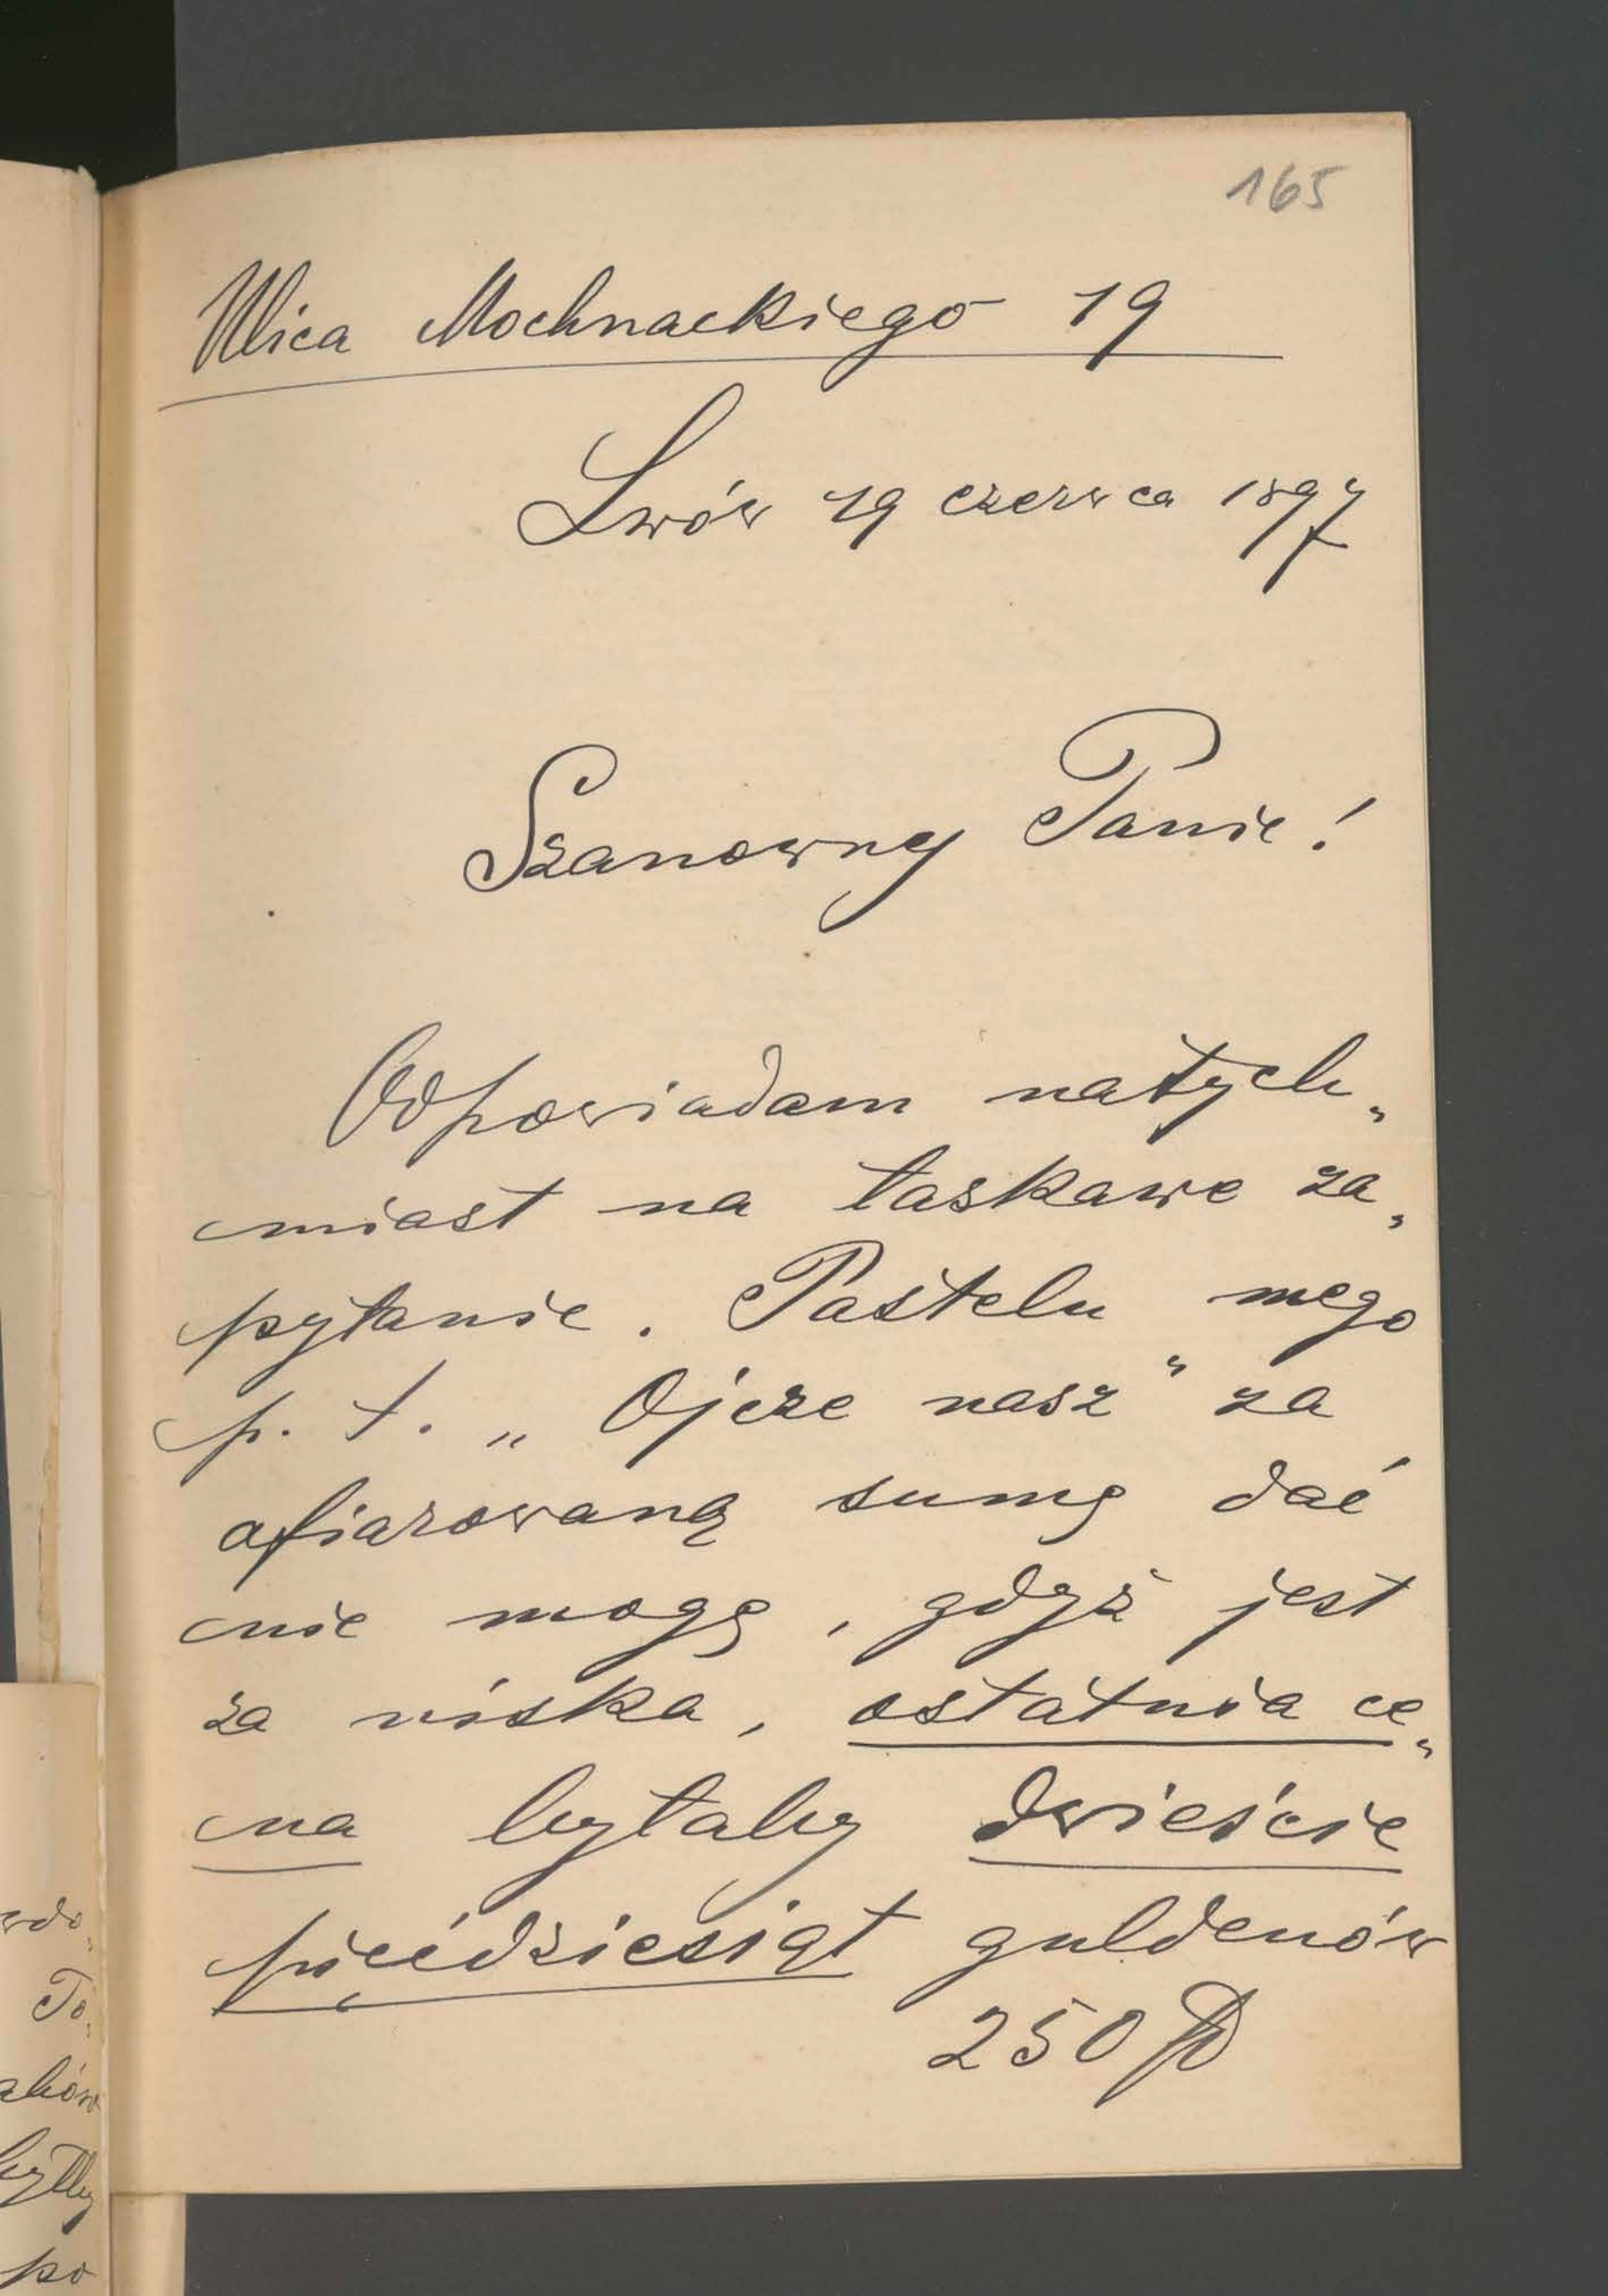 165
Ulica Mochnackiego 19
Lwów 19 czerwca 1897
Szanowny Panie!
Odpowiadam natych„
miast na łaskawe za„
pytanie. Pastelu mego
p. t. „Ojcze nasz" za
afiarowaną sumę dać
nie mogę, gdyż jest
za niska, ostatnia ce„
na byłaby dwieście
pięćdziesiąt guldenów
250
To
po